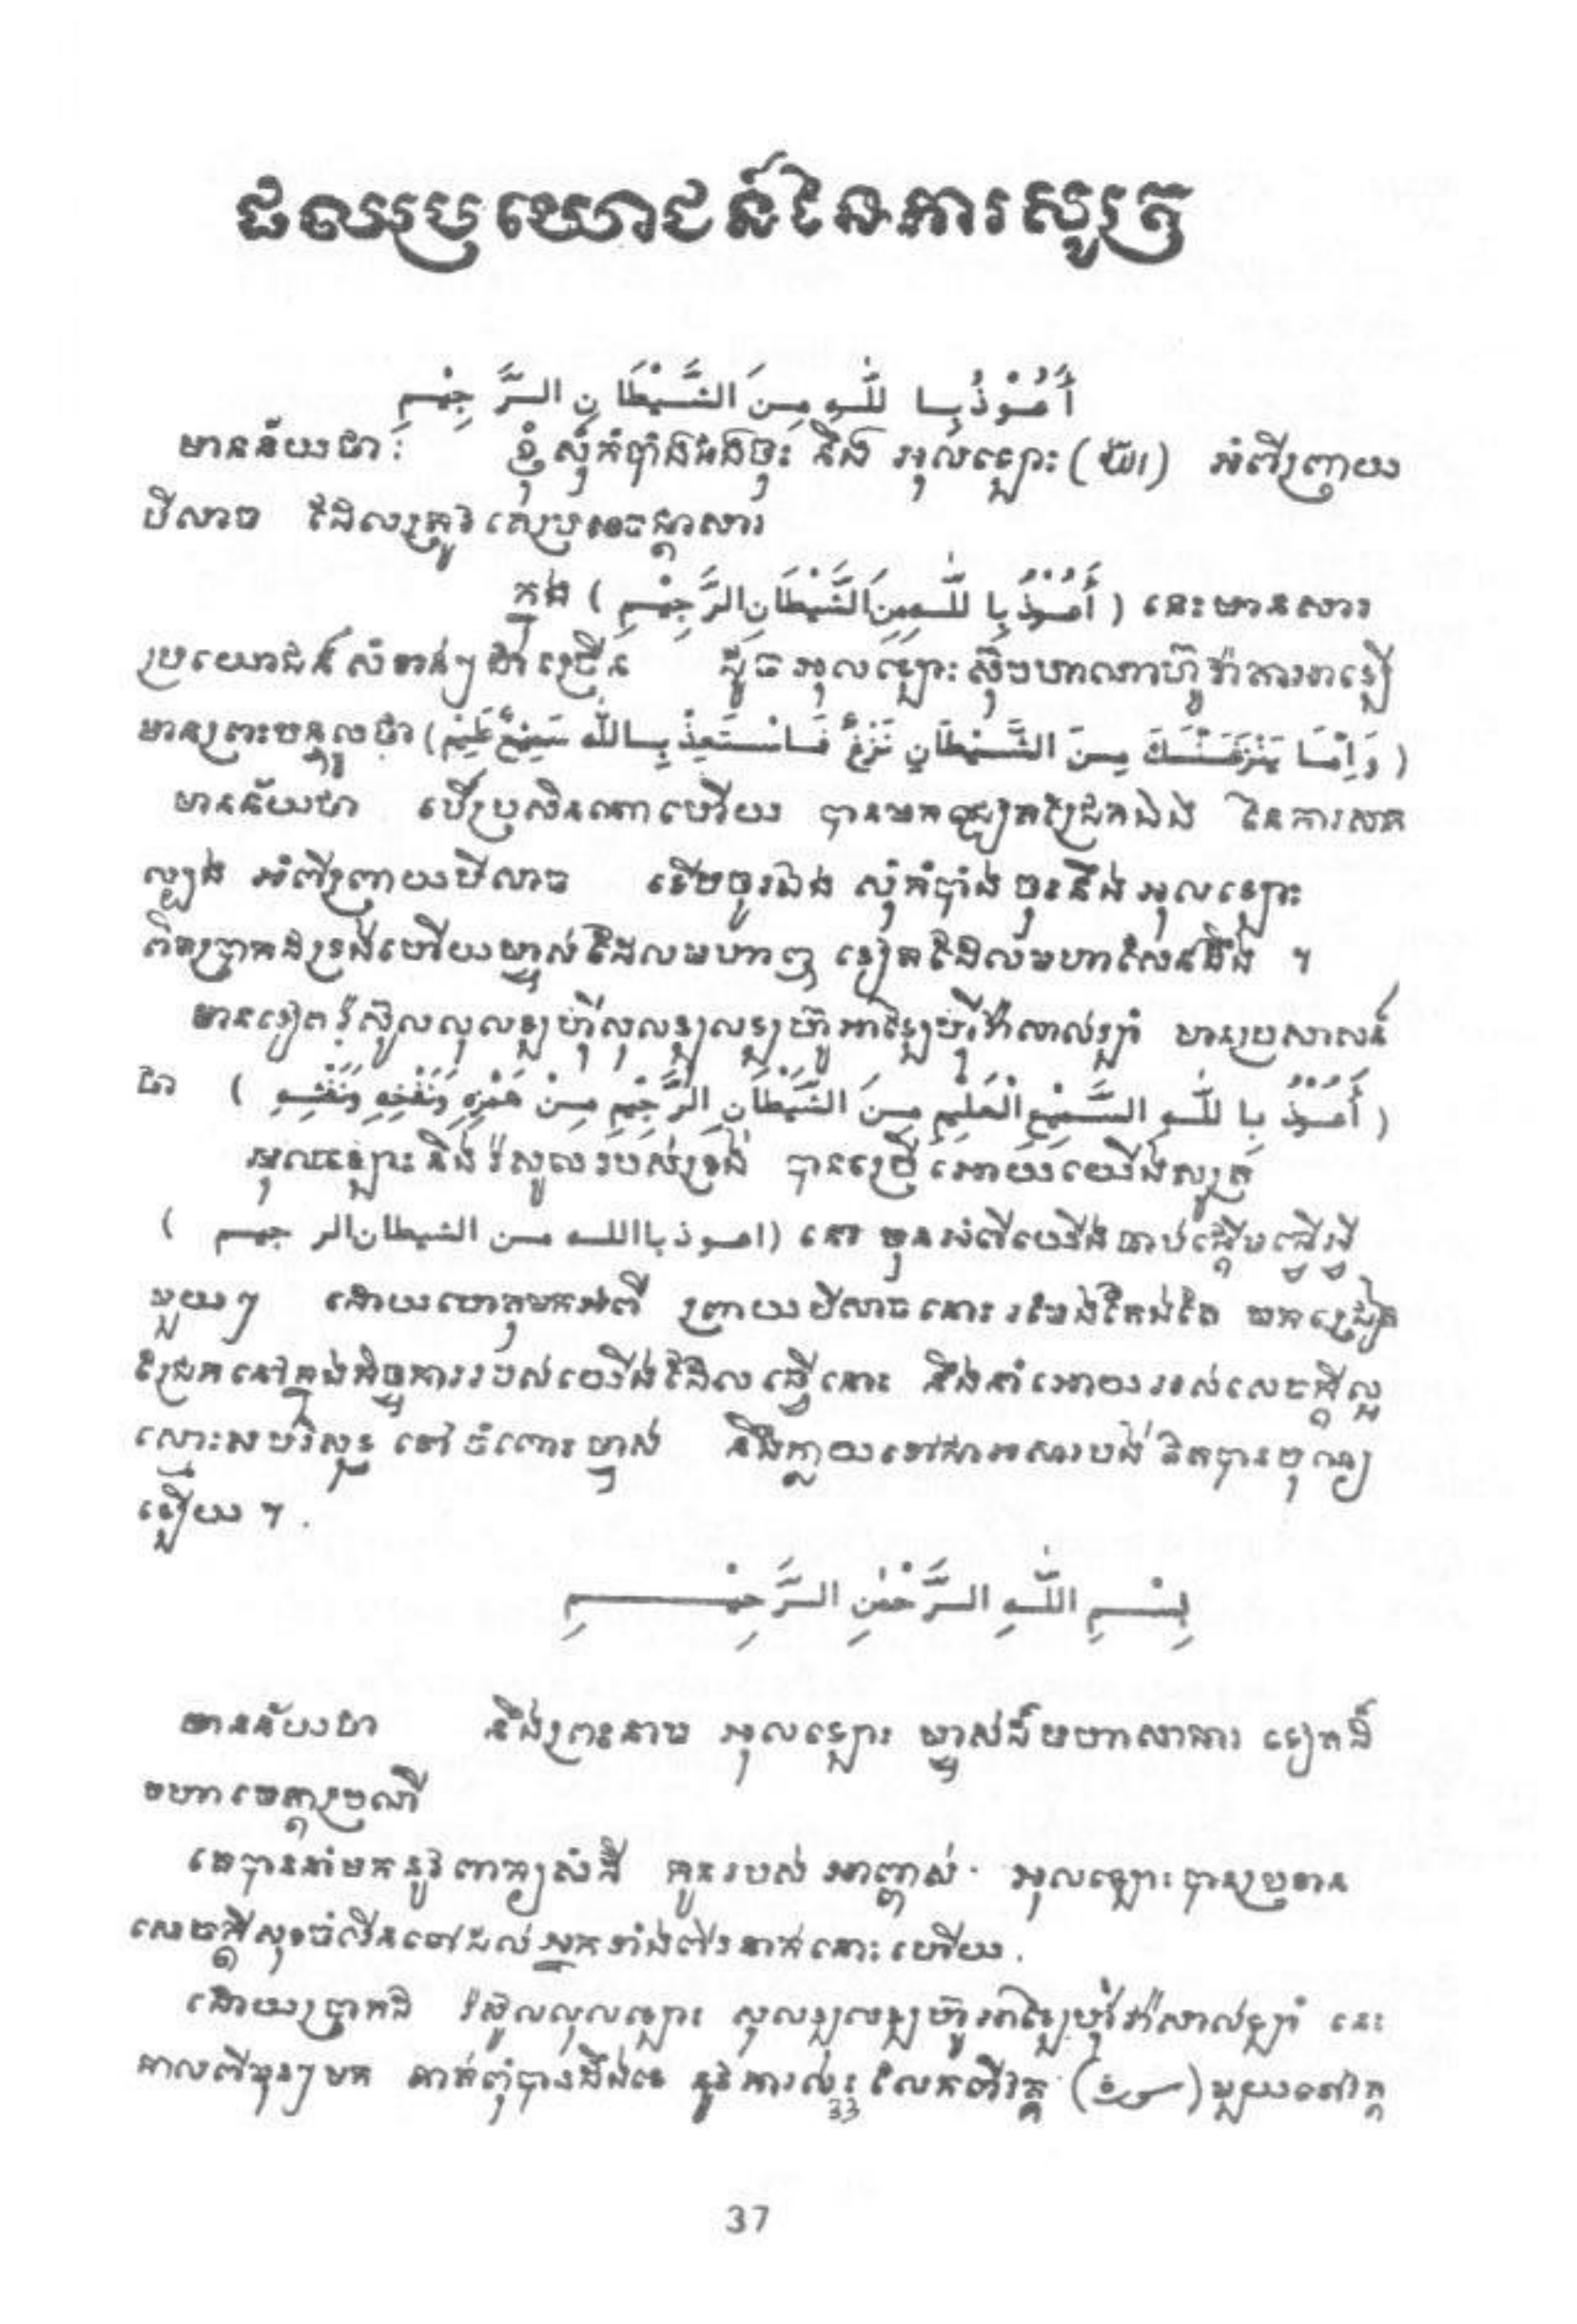 ផលប្រយោជន៍នៃការសូត្រ
أَعُوْذُ بِا للّٰهِ مِنَ الشَّيْطَانِ الرَّجِيْمِ
មានន័យថា: ខ្ញុំសុំកំបាំងផងចុះ នឹង អុលឡោះ (الله) អំពីព្រាយ
បីសាច ដែលត្រូវ
ក្នុង (أَعُوْذُ بِا للّٰهِ مِنَ الشَّيْطَانِ الرَّجِيْمِ) នេះមានសារ
ប្រយោជន៍សំខាន់ៗជាច្រើន ដូចអុលឡោះស៊ុបហាណាហ៊ូវ៉ាតាអាឡា
មានព្រះបន្ទូលថា (وَاِمَّا يَنْزَغَنَّكَ مِنَ الشَّيْطَانِ نَزْغٌ فَاسْتَعِذْ بِاللّٰه سَمِيْعٌ عَلِيْمٌ)
មានន័យថា បើប្រសិនណាហើយ បានមកជ្រៀតជ្រែកឯង នៃការសក
ល្បង អំពីព្រាយបីសាច ទើបចូរឯង សុំកំបាំងចុះនឹងអុលឡោះ
ពិតប្រាកដទ្រង់ហើយម្ចាស់ដែលមហាឮ ទៀតដែលមហាសែនដឹង ។
មានទៀត មានប្រសាសន៍
ថា (أَعُوْذُ بِا للّٰهِ السَّمِيْعِ الْعَلِيْمِ مِنَ الشَّيْطَانِ الرَّجِيْمِ مِنْ هَمْزِهِ وَنَفْخِهِ وَنَفْثِهِ)
អុលឡោះនិងរ៉សូលរបស់ទ្រង់ បានប្រើអោយយើងសូត្រ
(اعوذ باالله من الشيطان الرجيم) នៅ មុនអំពីយើងចាប់ផ្តើមធ្វើអ្វី
មួយៗ ដោយហេតុមកអំពី ព្រាយបីសាចនោះ រមែងតែងតែ មកជ្រៀត
ជ្រែកនៅក្នុងកិច្ចការរបស់យើងដែលធ្វើនោះ នឹងនាំអោយអស់សេចក្តីល្អ
ស្មោះសបរិសុទ្ធ ទៅចំពោះម្ចាស់ នឹងក្លាយទៅជាអសារបង់ឥតបានបុណ្យ
ឡើយ ។ .
بِسْمِ اللّٰهِ الرَّحْمٰنِ الرَّحِيْمِ
មានន័យថា នឹងព្រះនាម អុលឡោះ ម្ចាស់ដ៏មហាសាគារ ទៀតដ៏
មហាមេត្តាប្រណី
គេបាននាំមកនូវពាក្យសំដី កូនរបស់ អាញ្ហាស់ អុលឡោះបានប្រទាន
សេចក្តីសុខចំរើនទៅដល់អ្នកទាំងពីរនាក់នោះហើយ .
ដោយប្រាកដ រ៉ស៊ូលលុលឡោះ នេះ
កាលពីមុនៗមក គាត់ពុំបានដឹងទេ នូវការ (سورة) មួយទៅវគ្គ
33
37